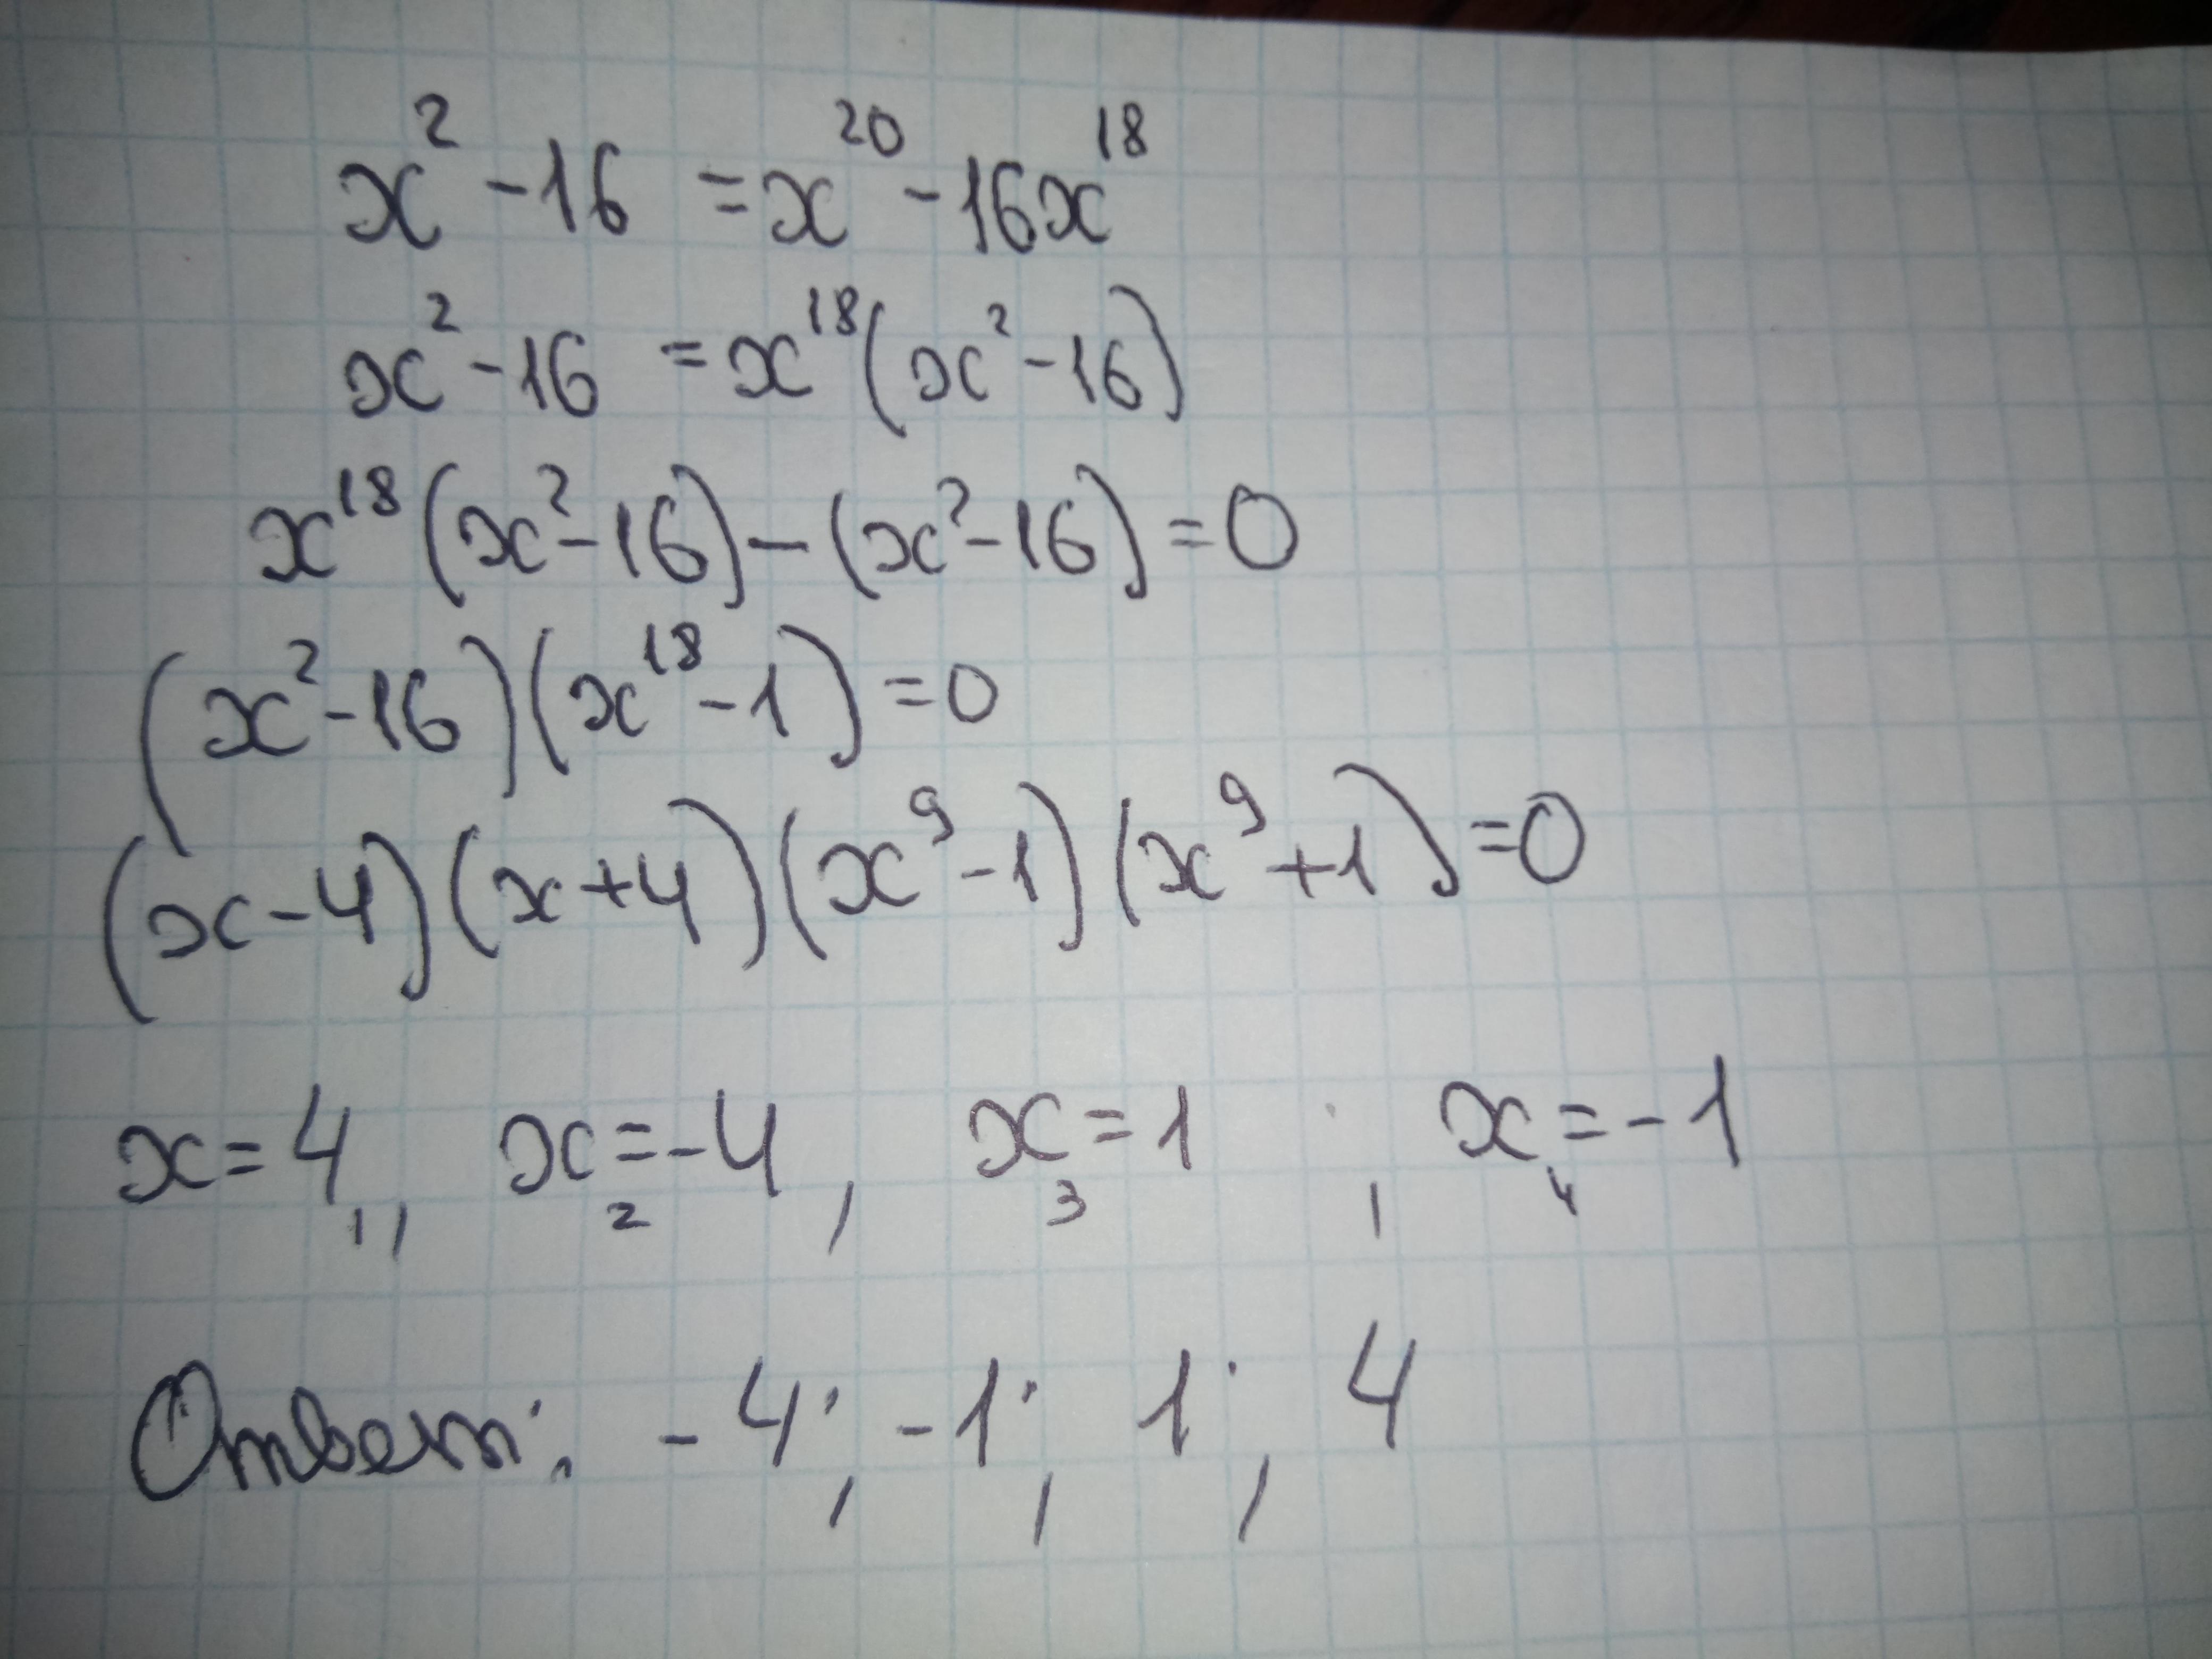 x² - 16 = x²⁰ - 16x¹⁸
x² - 16 = x¹⁸(x² - 16)
x¹⁸(x² - 16) - (x² - 16) = 0
(x² - 16)(x¹⁸ - 1) = 0
(x - 4)(x + 4)(x⁹ - 1)(x⁹ + 1) = 0
x₁ = 4, x₂ = -4, x₃ = 1, x₄ = -1
Ответ: -4; -1; 1; 4